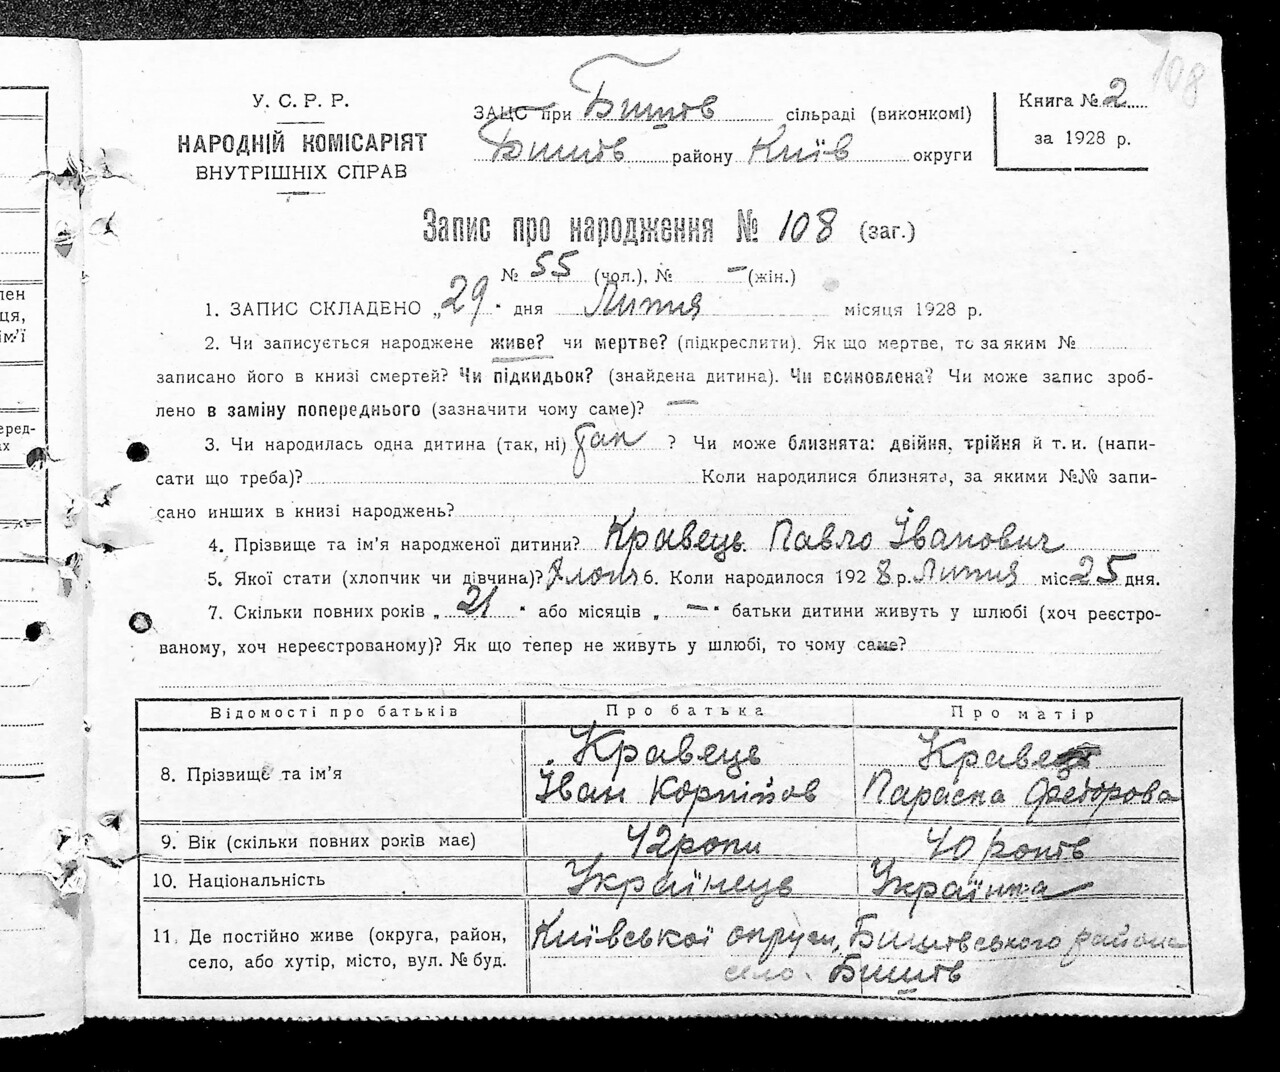 108
У. С. Р. Р.
НАРОДНІЙ КОМІСАРІЯТ
ВНУТРІШНІХ СПРАВ
ЗАЦС при Бишів сільраді (виконкомі)
Бишів району Київ округи
Книга № 2
за 1928 р.
Запис про народження № 108 (заг.)
№ 55 (чол.), № — (жін.)
1. ЗАПИС СКЛАДЕНО „29" дня Липня місяця 1928 р.
2. Чи записується народжене живе? чи мертве? (підкреслити). Як що мертве, то за яким №
записано його в книзі смертей? Чи підкидьок? (знайдена дитина). Чи всиновлена? Чи може запис зроб-
лено в заміну попереднього (зазначити чому саме)? —
3. Чи народилась одна дитина (так, ні) так ? Чи може близнята: двійня, трійня й т. и. (напи-
сати що треба)? Коли народилися близнята, за якими №№ запи-
сано инших в книзі народжень?
4. Прізвище та ім'я народженої дитини? Кравець Павло Іванович
5. Якої стати (хлопчик чи дівчина)? хлопч 6. Коли народилося 1928 р. Липня міс. 25 дня.
7. Скільки повних років „21" або місяців „—" батьки дитини живуть у шлюбі (хоч реєстро-
ваному, хоч нереєстрованому)? Як що тепер не живуть у шлюбі, то чому саме?
Відомості про батьків Про батька Про матір
8. Прізвище та ім'я Кравець Іван Корнійов Кравець Параска Федорова
9. Вік (скільки повних років має) 42 роки 40 років
10. Національність Українець Українка
11. Де постійно живе (округа, район,
село, або хутір, місто, вул. № буд.
Київської округи, Бишівського району
село Бишів
лен
ця,
ім.'ї
еред-
х